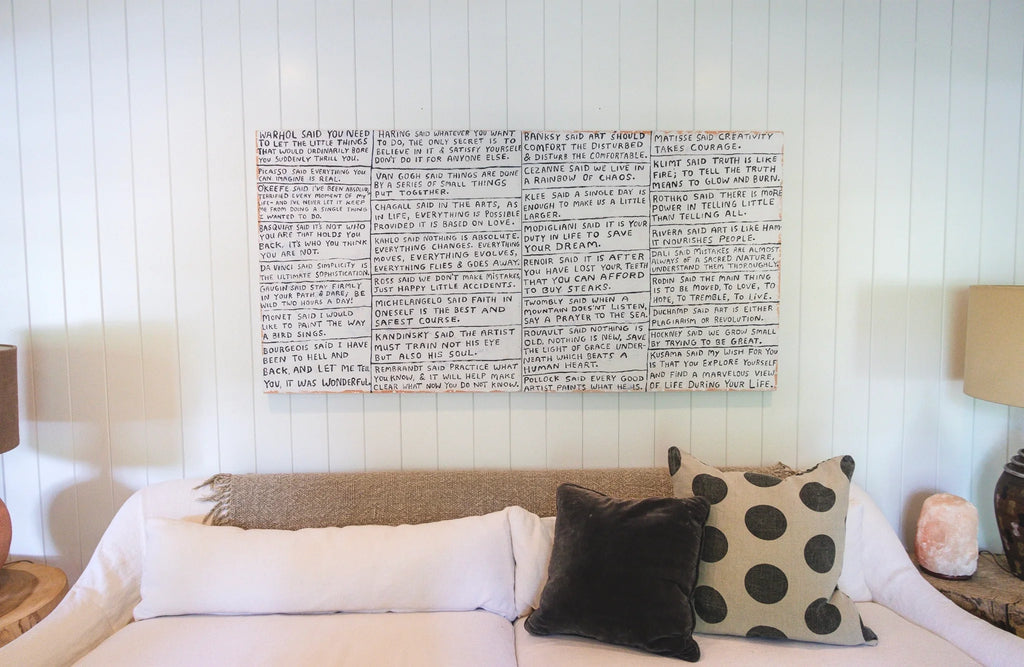 WARHOL SAID YOU NEED
TO LET THE LITTLE THINGS
THAT WOULD ORDINARILY BORE
YOU SUDDENLY THRILL YOU.
PICASSO SAID EVERYTHING YOU
CAN IMAGINE IS REAL.
O'KEEFE SAID I'VE BEEN ABSOLUTELY
TERRIFIED EVERY MOMENT OF MY
LIFE - AND I'VE NEVER LET IT KEEP
ME FROM DOING A SINGLE THING
I WANTED TO DO.
BASQUIAT SAID IT'S NOT WHO
YOU ARE THAT HOLDS YOU
BACK, IT'S WHO YOU THINK
YOU ARE NOT.
DA VINCI SAID SIMPLICITY IS
THE ULTIMATE SOPHISTICATION.
GAUGIN SAID STAY FIRMLY
IN YOUR PATH & DARE, BE
WILD TWO HOURS A DAY!
MONET SAID I WOULD
LIKE TO PAINT THE WAY
A BIRD SINGS.
BOURGEOIS SAID I HAVE
BEEN TO HELL AND
BACK, AND LET ME TELL
YOU, IT WAS WONDERFUL.
HARING SAID WHATEVER YOU WANT
TO DO, THE ONLY SECRET IS TO
BELIEVE IN IT & SATISFY YOURSELF
DON'T DO IT FOR ANYONE ELSE.
VAN GOGH SAID THINGS ARE DONE
BY A SERIES OF SMALL THINGS
PUT TOGETHER.
CHAGALL SAID IN THE ARTS, AS
IN LIFE, EVERYTHING IS POSSIBLE
PROVIDED IT IS BASED ON LOVE.
KAHLO SAID NOTHING IS ABSOLUTE.
EVERYTHING CHANGES. EVERYTHING
MOVES, EVERYTHING EVOLVES,
EVERYTHING FLIES & GOES AWAY.
ROSS SAID WE DON'T MAKE MISTAKES,
JUST HAPPY LITTLE ACCIDENTS.
MICHELANGELO SAID FAITH IN
ONESELF IS THE BEST AND
SAFEST COURSE.
KANDINSKY SAID THE ARTIST
MUST TRAIN NOT HIS EYE
BUT ALSO HIS SOUL.
REMBRANDT SAID PRACTICE WHAT
YOU KNOW, & IT WILL HELP MAKE
CLEAR WHAT NOW YOU DO NOT KNOW.
BANKSY SAID ART SHOULD
COMFORT THE DISTURBED
& DISTURB THE COMFORTABLE.
CEZANNE SAID WE LIVE IN
A RAINBOW OF CHAOS.
KLEE SAID A SINGLE DAY IS
ENOUGH TO MAKE US A LITTLE
LARGER.
MODIGLIANI SAID IT IS YOUR
DUTY IN LIFE TO SAVE
YOUR DREAM.
RENOIR SAID IT IS AFTER
YOU HAVE LOST YOUR TEETH
THAT YOU CAN AFFORD
TO BUY STEAKS.
TWOMBLY SAID WHEN A
MOUNTAIN DOES'NT LISTEN,
SAY A PRAYER TO THE SEA.
ROUAULT SAID NOTHING IS
OLD, NOTHING IS NEW, SAVE
THE LIGHT OF GRACE UNDER-
NEATH WHICH BEATS A
HUMAN HEART.
POLLOCK SAID EVERY GOOD
ARTIST PAINTS WHAT HE IS.
MATISSE SAID CREATIVITY
TAKES COURAGE.
KLIMT SAID TRUTH IS LIKE
FIRE; TO TELL THE TRUTH
MEANS TO GLOW AND BURN.
ROTHKO SAID THERE IS MORE
POWER IN TELLING LITTLE
THAN TELLING ALL.
RIVERA SAID ART IS LIKE HAM
IT NOURISHES PEOPLE.
DALI SAID MISTAKES ARE ALMOST
ALWAYS OF A SACRED NATURE,
UNDERSTAND THEM THOROUGHLY.
RODIN SAID THE MAIN THING
IS TO BE MOVED, TO LOVE, TO
HOPE, TO TREMBLE, TO LIVE.
DUCHAMP SAID ART IS EITHER
PLAGIARISM OR REVOLUTION.
HOCKNEY SAID WE GROW SMALL
BY TRYING TO BE GREAT.
KUSAMA SAID MY WISH FOR YOU
IS THAT YOU EXPLORE YOURSELF
AND FIND A MARVELOUS VIEW
OF LIFE DURING YOUR LIFE.